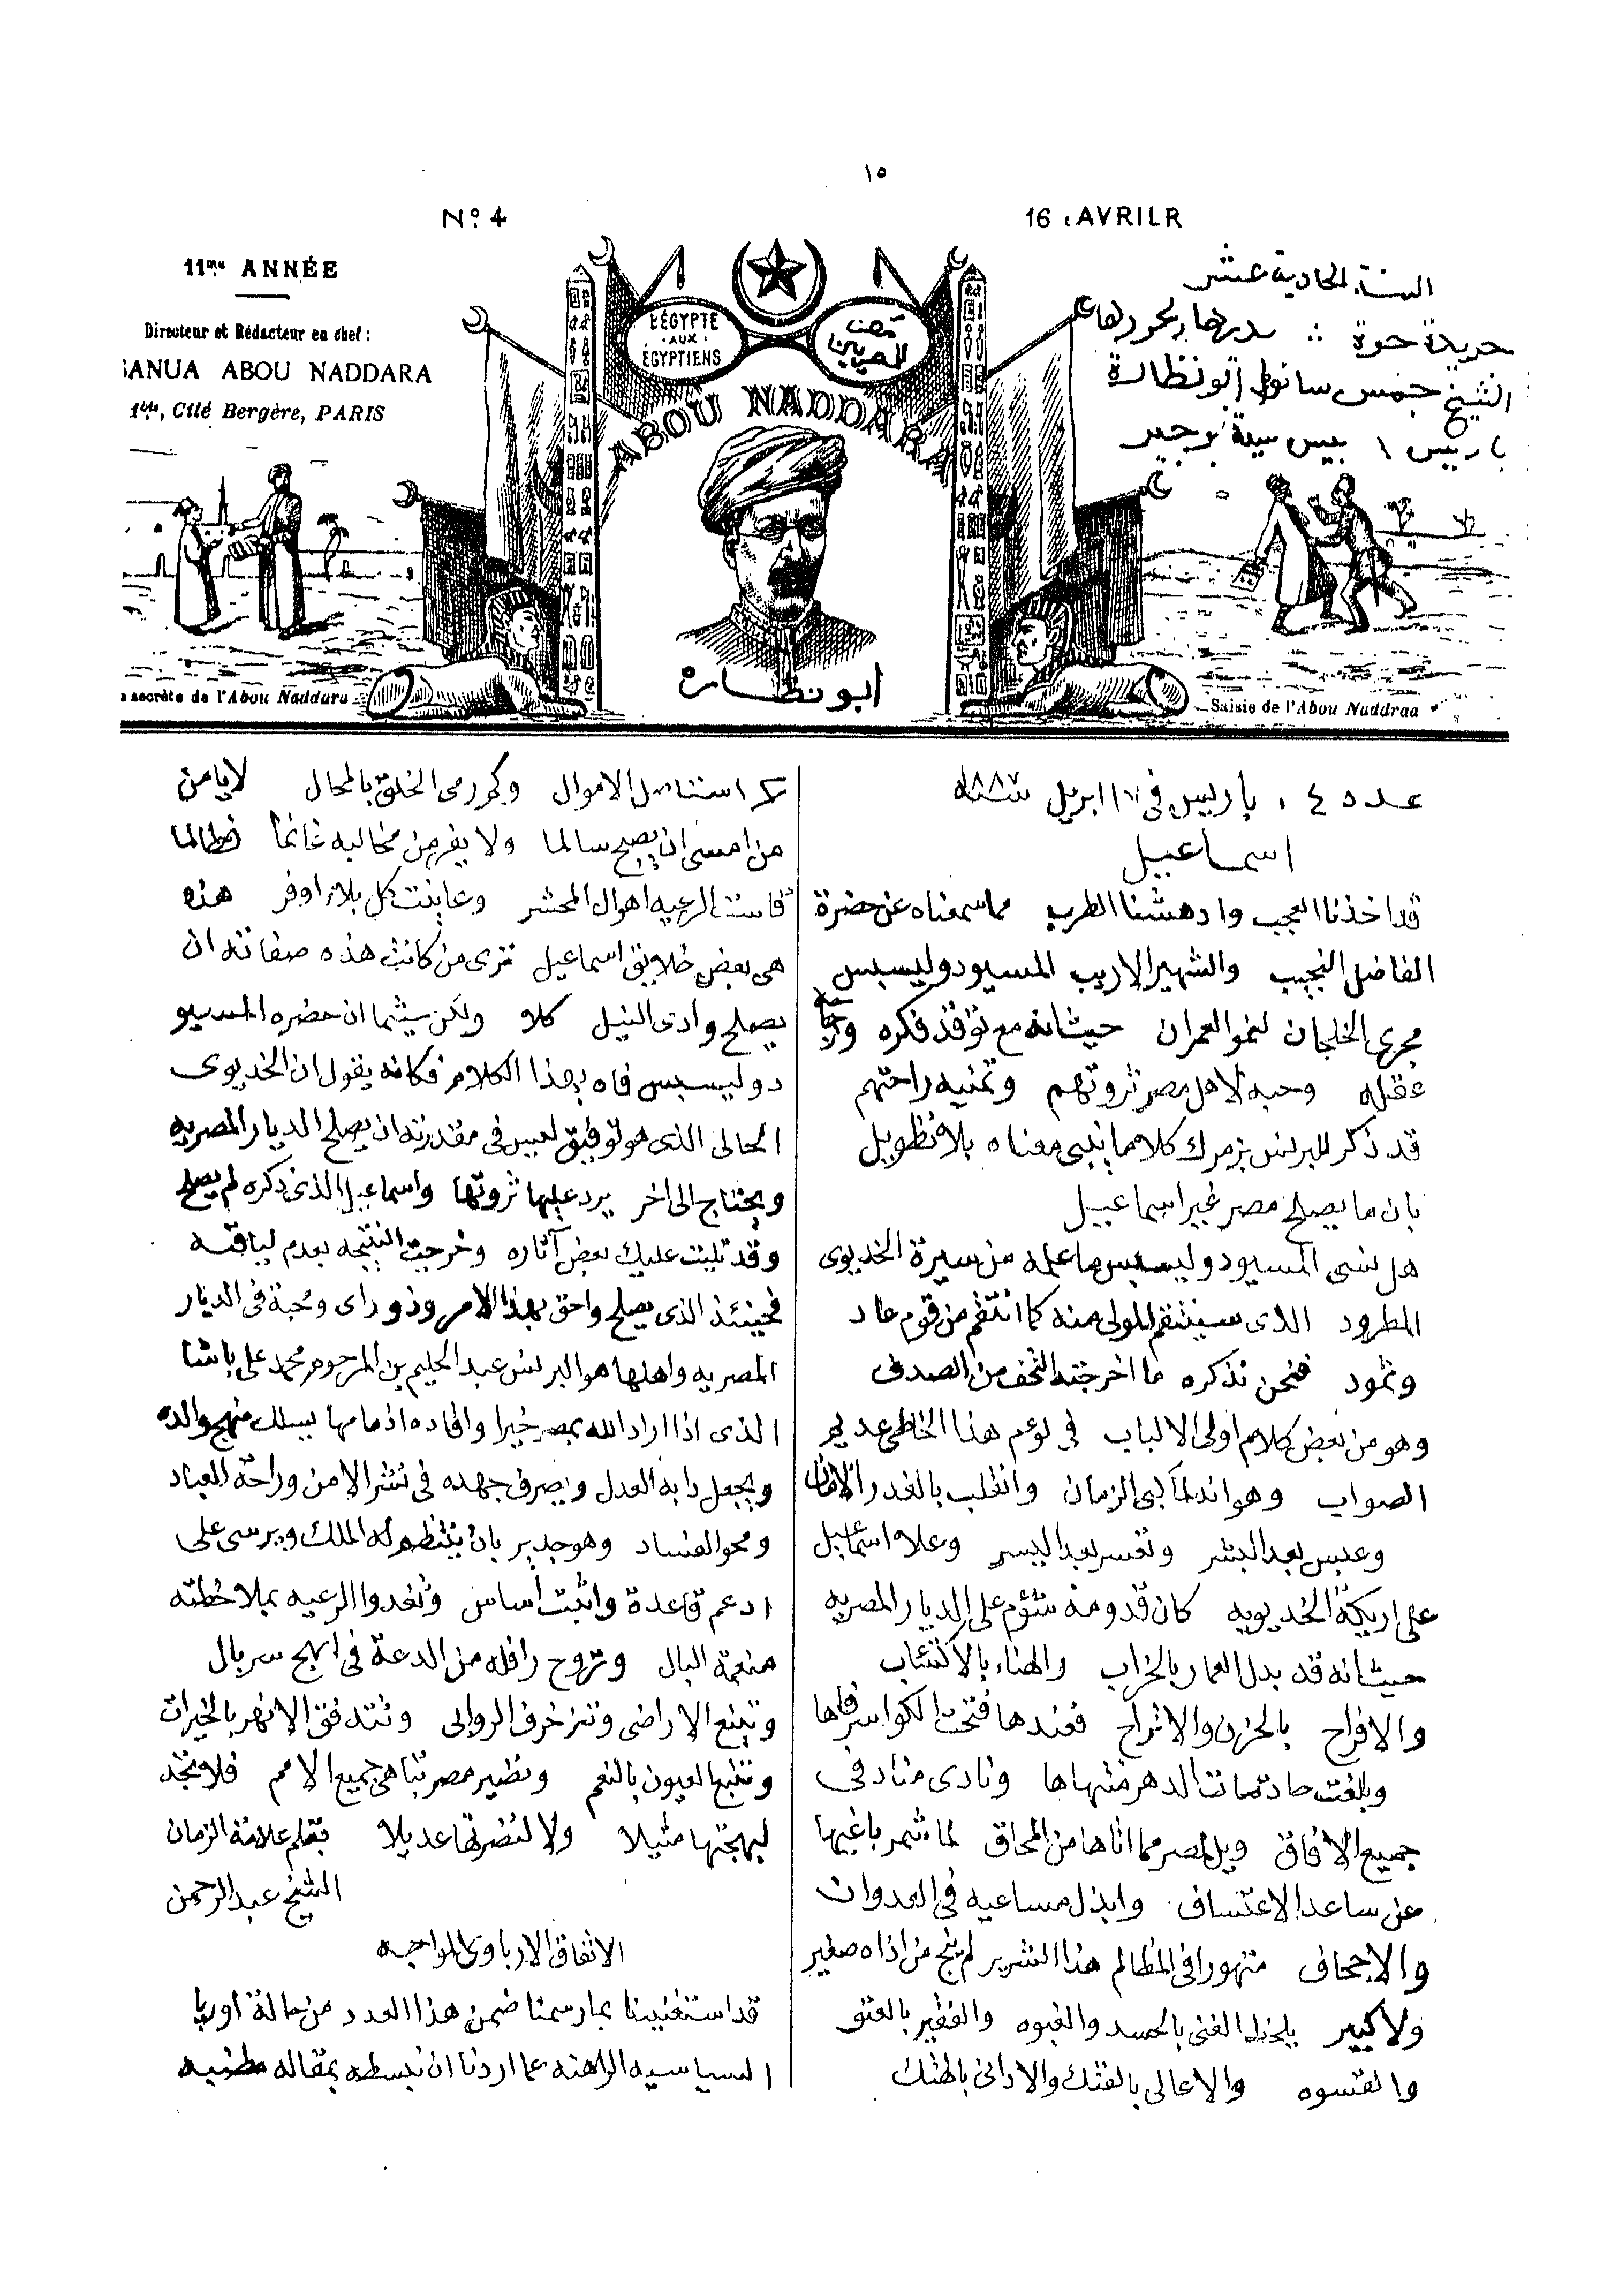 ١٥
Nº 4
16 AVRILR
11me ANNÉE
Directeur et Rédacteur en chef:
SANUA ABOU NADDARA
Cité Bergère, PARIS
السنة الحادية عشر
جريدة حرة مديرها ومحررها
الشيخ جمس سانوا ابو نظارة
باريس ١ بيس سيتة برجير
L'ÉGYPTE
AUX
ÉGYPTIENS
مصر
للمصريين
ABOU NADDARA
ابو نظاره
secrète de l'Abou Naddara
Saisie de l'Abou Naddraa
عدد ٤ باريس في ١٦ ابريل سنة ١٨٨٧
اسماعيل
قد اخذنا العجب وادهشنا الطرب مما سمعناه عن حضرة
الفاضل النجيب والشهير الاريب المسيو دو ليسبس
مجرى الخلجان لنمو العمران حيث انه مع توقد فكره ورجاحة
عقله وحبه لاهل مصر ثروتهم وتمنيه راحتهم
قد ذكر للبرنس بزمرك كلاما ينبى معناه بلا تطويل
بان ما يصلح مصر غير اسماعيل
هل نسى المسيو دو ليسبس ما عمله من سيرة الخديوى
المطرود الذى سينتقم المولى منه كما انتقم من قوم عاد
وثمود فنحن نذكره ما اخرجته التحف من الصدف
وهو من بعض كلام اولى الالباب في لوم هذا الخاطى عديم
الصواب وهو انه لما آبى الزمان وانقلب بالغدر الامان
وعبس بعد البشر وتعسر بعد اليسر وعلا اسماعيل
على اريكة الخديويه كان قدومه شؤم على الديار المصريه
حيث انه قد بدل العمار بالخراب والهناء بالاكتئاب
والافراح بالحزن والاتراح فعندها فتحت الكواسر فاها
وبلغت حادثات الدهر منتهاها ونادى مناد في
جميع الافاق ويل لمصر مما اتاها من المحاق لما شمر باغيها
عن ساعد الاعتساف وابذل مساعيه في العدوان
والاجحاف متهورا في المظالم هذا الشرير لم ينج من اذاه صغير
ولا كبير يلحظ الغنى بالحسد والفقير بالعتو
والقسوه والاعالى بالفتك والادانى بالهتك
كم استناصل الاموال وكم رمى الخلق بالمحال لا يامن
من امسى ان يصبح سالما ولا يفر من مخالبه غانما فطالما
قاست الرعيه اهوال المحشر وعاينت كل بلاء اوفر هذه
هى بعض خلايق اسماعيل ترى من كانت هذه صفاته ان
يصلح وادى النيل كلا ولكن حيثما ان حضره المسيو
دو ليسبس فاه بهذا الكلام فكانه يقول ان الخديوى
الحالى الذى هو توفيق ليس في مقدرته ان يصلح الديار المصريه
ويحتاج الى اخر يرد عليها ثروتها واسماعيل الذى ذكره لم يصلح
وقد تليت عليك بعض آثاره وخرجت النتيجه بعدم لياقته
فحينئذ الذى يصلح واحق بهذا الامر وذو راى ومحبة في الديار
المصريه واهلها هو البرنس عبد الحليم بن المرحوم محمد على باشا
الذى اذا اراد الله بمصر خيرا وافاده اذمامها يسلك منهج والده
ويجعل دابه العدل ويصرف جهده في نشر الامن وراحة العباد
ومحو الفساد وهو جدير بان ينتظم له الملك ويرسى على
ادعم قاعدة واثبت أساس وتغدوا الرعيه بملاحظته
منعمة البال وتروح رافله من الدعة في ابهج سربال
وتينع الاراضى وتتزخرف الروابى وتتدفق الانهر بالخيرات
العيون بالنعم وتضير مصر تباهى جميع الامم فلا تجد
لبهجتها مثيلا ولا لنضرتها عديلا بقلم علامة الزمان
الشيخ عبد الرحمن
الاتفاق الارباوى
قد استغنينا بما رسمنا ضمن هذا العدد من حالة اوربا
السياسيه الراهنه عما اردنا ان نبسطه بمقاله مطنبه